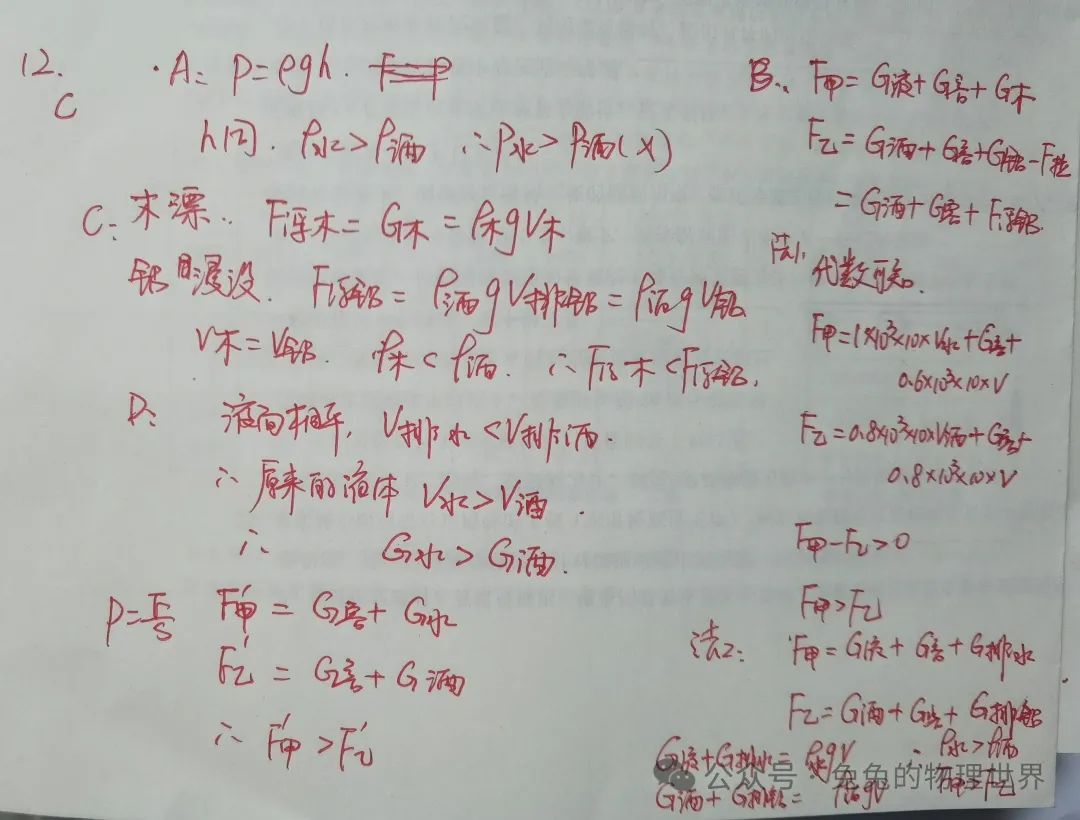 12.
C
·A: P=ρgh.
h同. ρ水>ρ酒 ∴P水>P酒(×)
C: 木漂. F浮木=G木=ρ木gV木
铝浸没. F浮铝=ρ酒gV排铝=ρ酒gV铝
V木=V铝. ρ木<ρ酒. ∴F浮木<F浮铝.
D: 液面相平, V排水<V排酒
∴原来的液体 V水>V酒.
∴ G水>G酒.
P=F/S F甲'=G容+G水
F乙'=G容+G酒
∴F甲'>F乙'
B.. F甲=G液+G容+G木
F乙=G酒+G容+G铝-F拉
=G酒+G容+F浮铝.
法1.
代数可知.
F甲=1×10³×10×V水+G容+
0.6×10³×10×V
F乙=0.8×10³×10×V酒+G容+
0.8×10³×10×V
F甲-F乙>0
F甲>F乙
法2: F甲=G液+G容+G排水
F乙=G酒+G容+G排铝
G液+G排水=ρ水gV ∴ρ水>ρ酒
G酒+G排铝=ρ酒gV F甲>F乙
公众号·兔兔的物理世界